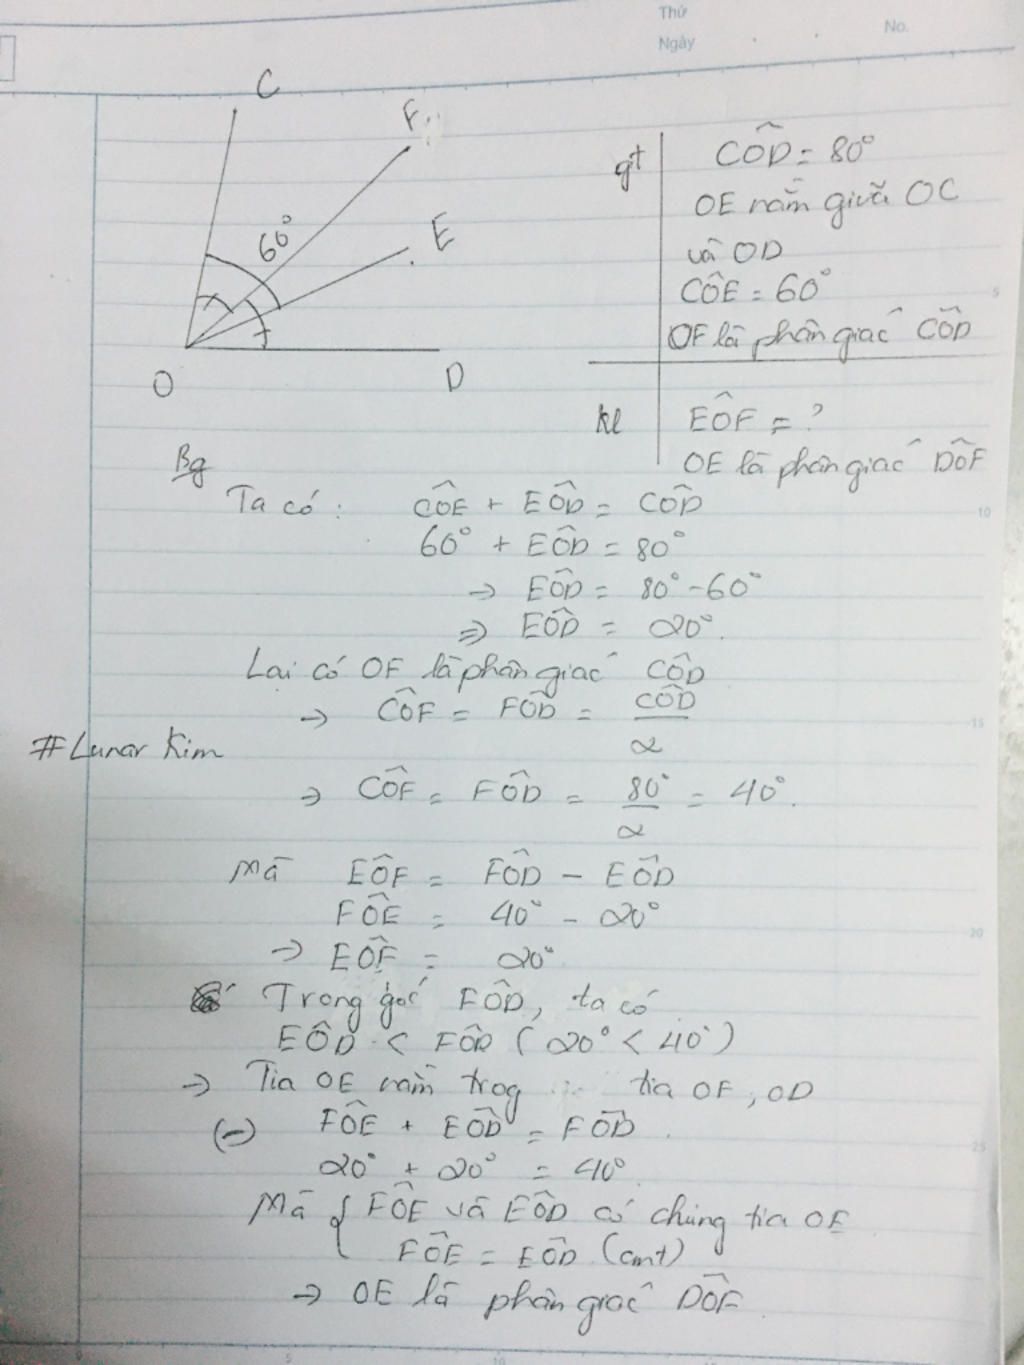 Thứ
Ngày
No.
C
F
E
60°
O
D
gt
CÔD = 80°
OE nằm giữa OC
và OD
CÔE = 60°
OF là phân giác CÔD
kl
EÔF = ?
OE là phân giác DÔF
Bg
Ta có: CÔE + EÔD = CÔD
60° + EÔD = 80°
→ EÔD = 80° - 60°
⇒ EÔD = 20°.
Lại có OF là phân giác CÔD
→ CÔF = FÔD = CÔD/2
#Lunar Kim
→ CÔF = FÔD = 80°/2 = 40°.
Mà EÔF = FÔD - EÔD
FÔE = 40° - 20°
→ EÔF = 20°
Trong góc FÔD, ta có
EÔD < FÔD (20° < 40°)
→ Tia OE nằm trog tia OF, OD
(→) FÔE + EÔD = FÔD.
20° + 20° = 40°
Mà { FÔE và EÔD có chung tia OE
FÔE = EÔD (cmt)
→ OE là phân giác DÔF
5
10
15
20
25
0
5
10